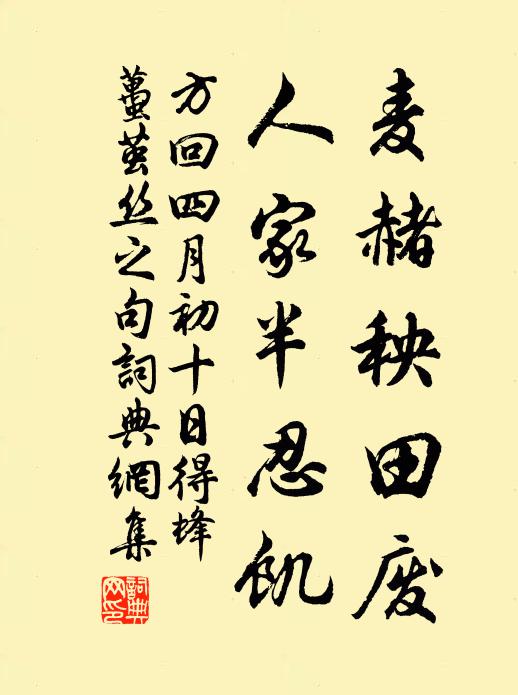 麦赭秧田废
人家半忍飢
方回四月初十日得蜂
蠆茧丝之句詞典網集
詞典
网印